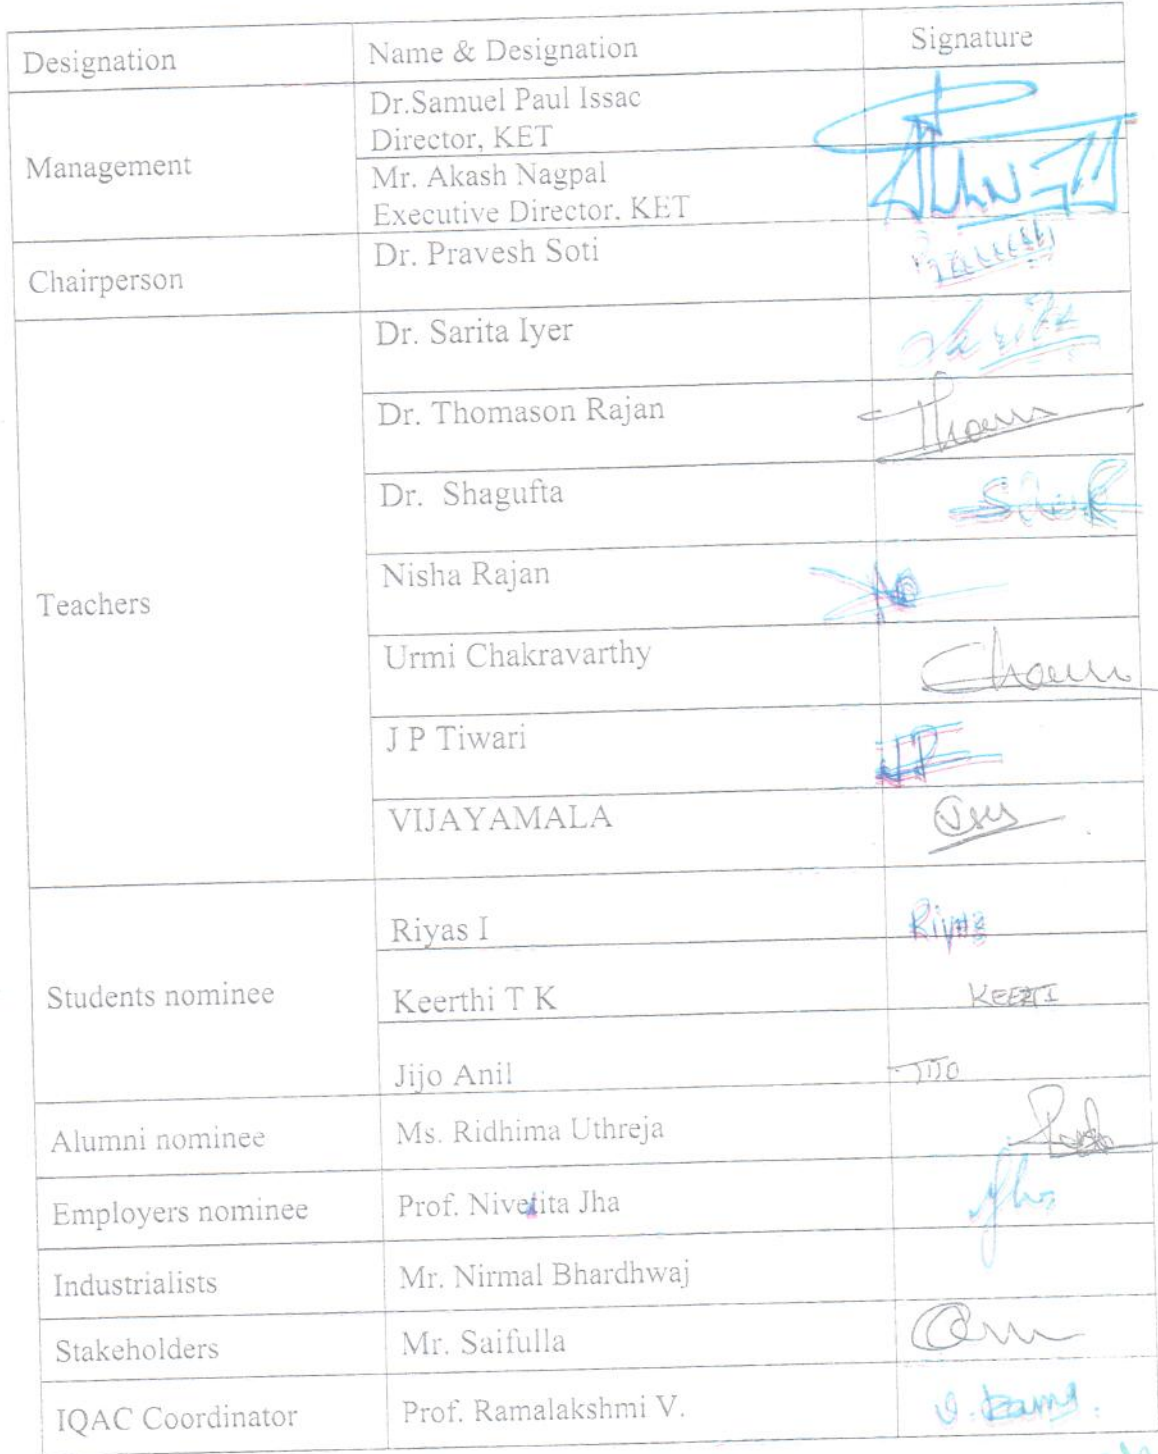 Designation Name & Designation Signature
Management
Dr.Samuel Paul Issac
Director, KET
Mr. Akash Nagpal
Executive Director. KET
Chairperson Dr. Pravesh Soti
Teachers
Dr. Sarita Iyer
Dr. Thomason Rajan
Dr. Shagufta
Nisha Rajan
Urmi Chakravarthy
J P Tiwari JP
VIJAYAMALA
Students nominee
Riyas I Riyas
Keerthi T K KEERTI
Jijo Anil JIJO
Alumni nominee Ms. Ridhima Uthreja
Employers nominee Prof. Nivetita Jha Jha
Industrialists Mr. Nirmal Bhardhwaj
Stakeholders Mr. Saifulla
IQAC Coordinator Prof. Ramalakshmi V.